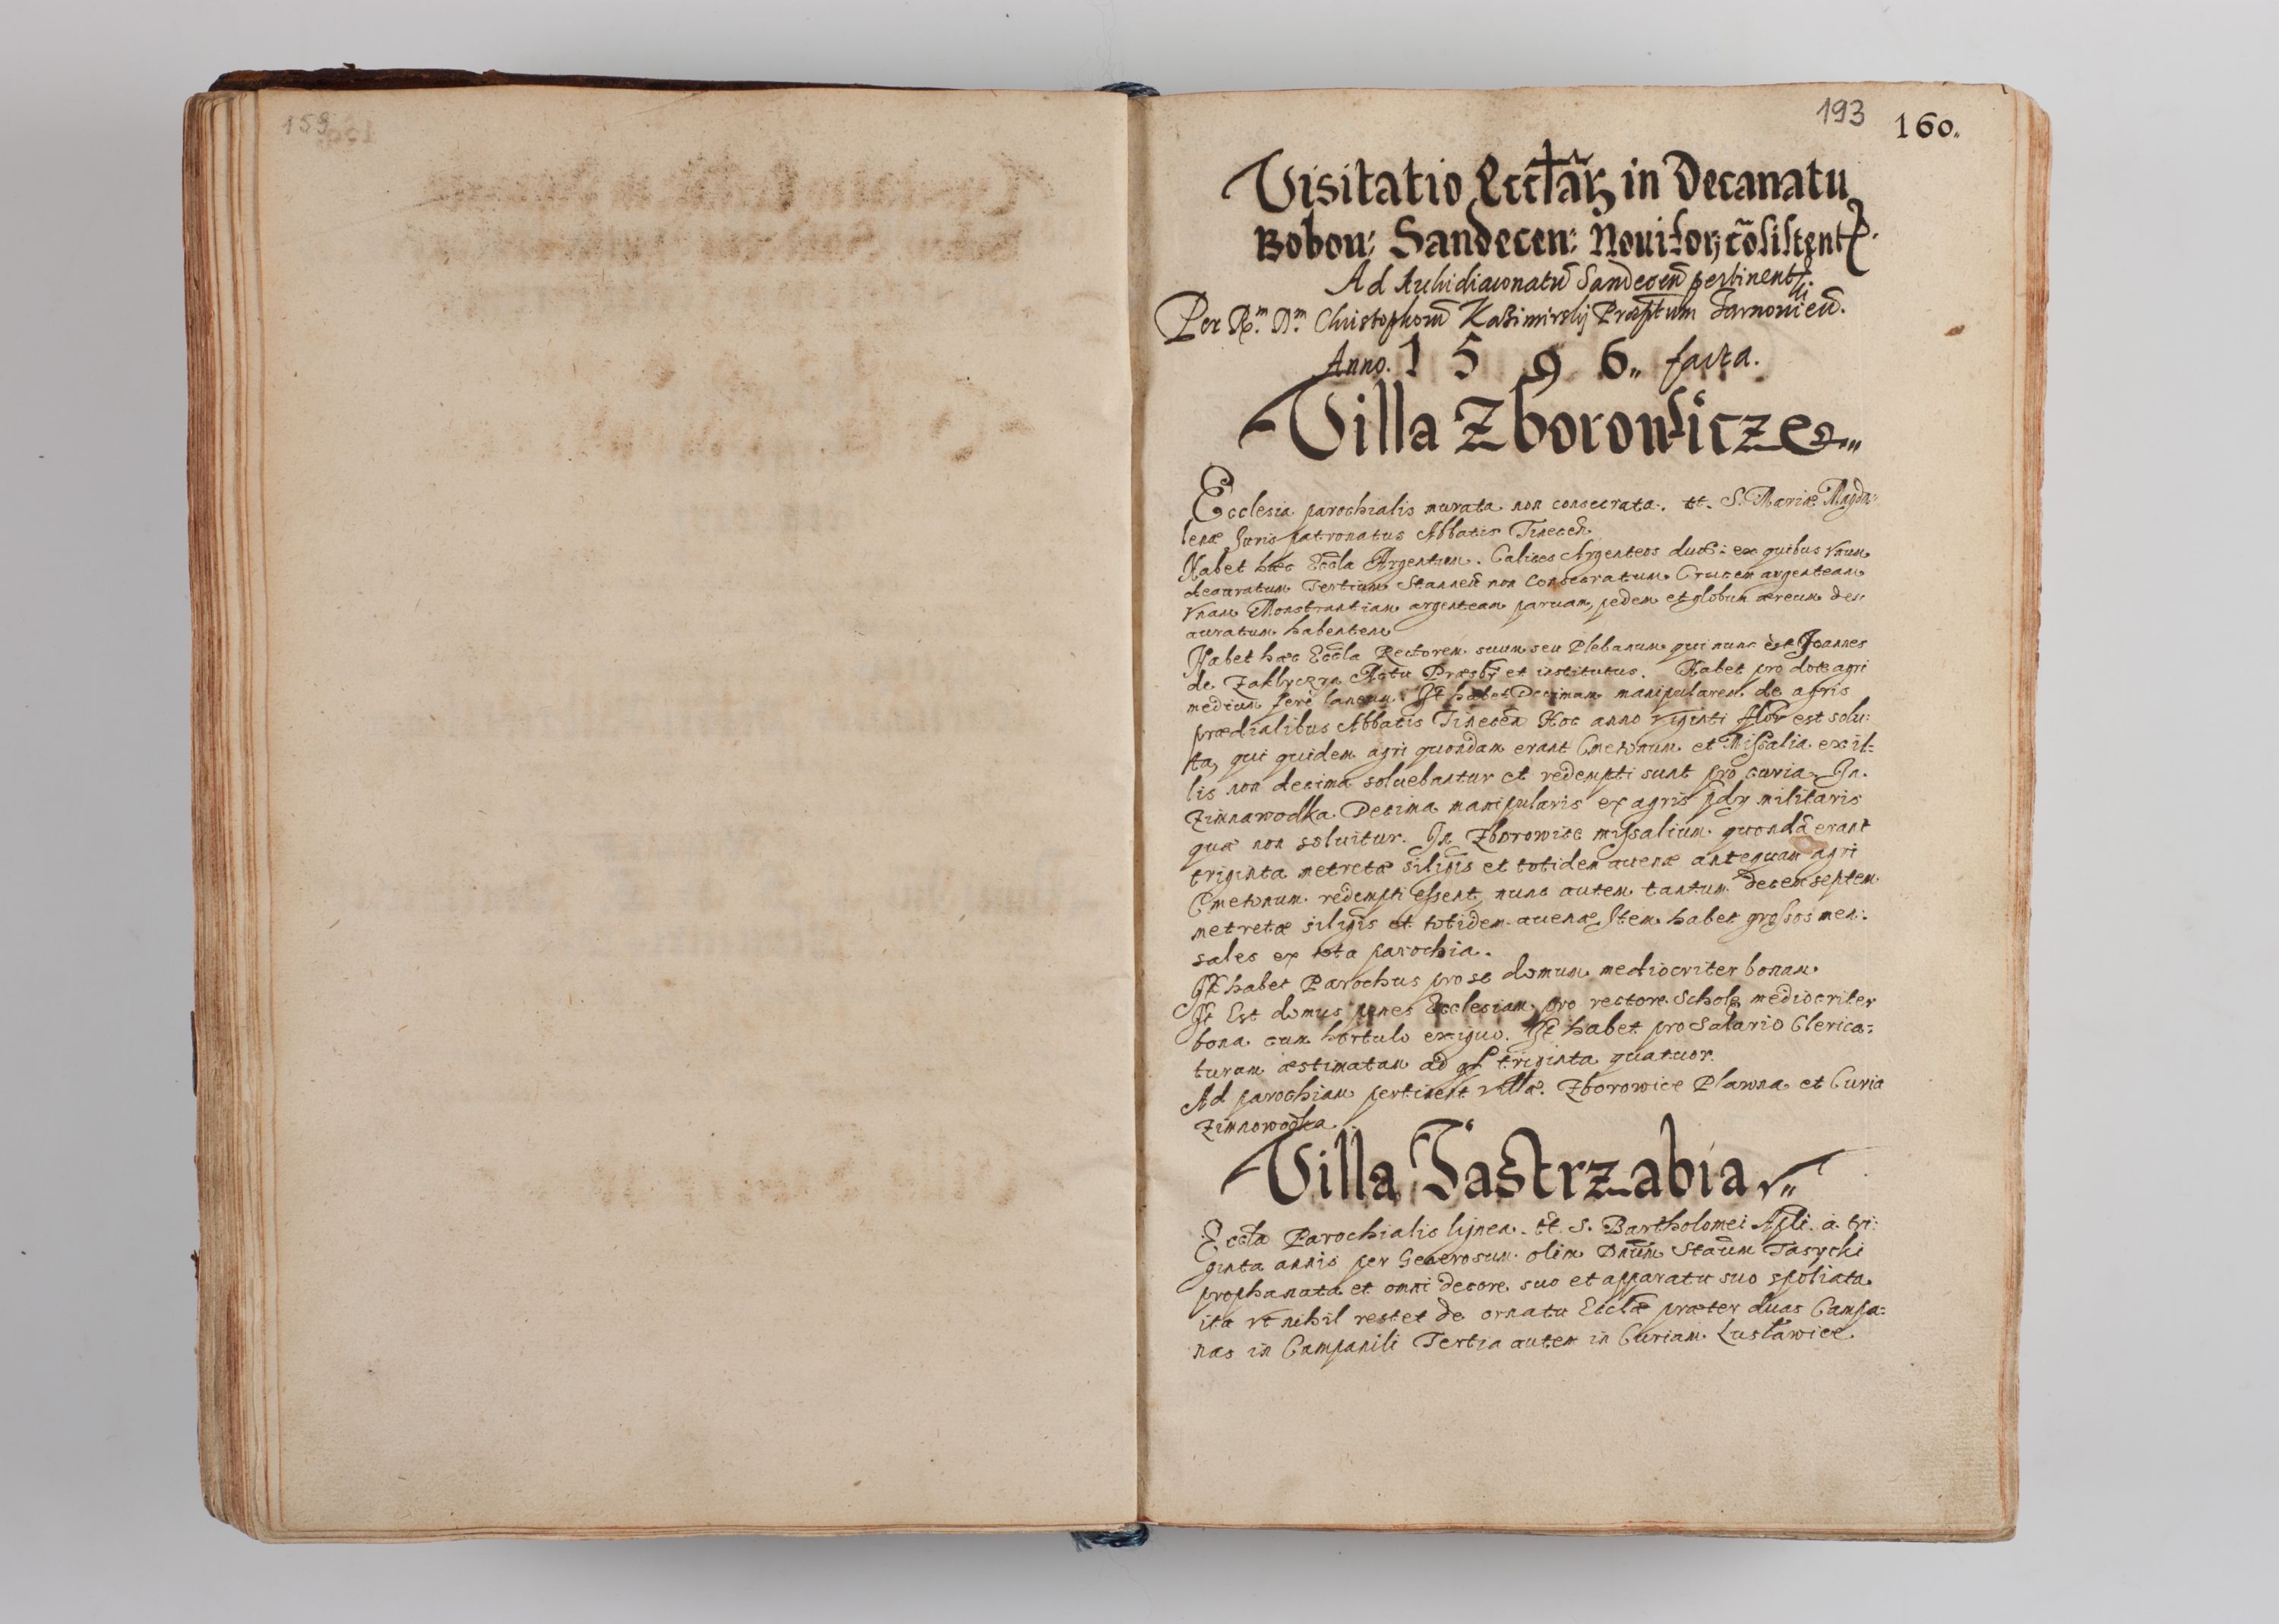 159
193
160.
Visitatio Eccłar̃ in Decanatu
Bobow: Sandecen: Noui for: cõsistent.
Ad Archidiaconatũ Sandecen̄ pertinenti.
Per R.m D.m Christophorũ Kazimirskij Præptum Tarnouien̄.
Anno. 1 5 9 6. facta.
Villa Zborowicze.
Ecclesia parochialis murata non consecrata. tt. S. Mariæ Magda:
lenæ Juris patronatus Abbatis Tinecen̄.
Habet hæc Eccła Argentum. Calices Argenteos duos: ex quibus vnum
deauratum Tertium Stanneũ non consecratum Crucem argenteam
vnam Monstrantiam argenteam paruam, pedem et globum æreum de:
auratum habentem
Habet hæc Eccła Rectorem suum seu Plebanum qui nunc est Joannes
de Zakliczyn Actu Præsbr et institutus. Habet pro dote agri
medium fere laneum. It habet Decimam manipularem de agris
prædialibus Abbatis Tinecen̄ Hoc anno viginti flor est solu:
ta, qui quidem agri quondam erant Cmetonum et Missalia ex il:
lis non decima soluebantur et redempti sunt pro curia. In
Zimnawodka Decima manipularis ex agris pdij militaris
quæ non soluitur. In Zborowice missalium quondã erant
triginta metretæ siliginis et totidem auenæ antequam agri
Cmetonum redempti essent, nunc autem tantum decem septem
metretæ siliginis et totidem auenæ Item habet grossos men:
sales ex tota parochia.
It habet Parochus pro se domum mediocriter bonam.
It Est domus penes Ecclesiam pro rectore Scholę mediocriter
bona cum hortulo exiguo. It habet pro Salario Clerica:
turam æstimatam ad gr triginta quatuor.
Ad parochiam pertinent villæ. Zborowice Plawna et Curia
Zimnowodka.
Villa Jastrzabia
Eccła Parochialis lignea. tt. S. Bartholomei Apli. a tri:
ginta annis per Generosum olim Dnũm Staũm Tasycki
prophanata et omni decore suo et apparatu suo spoliata
ita vt nihil restet de ornatu Eccłæ præter duas Campa:
nas in Campanili Tertia autem in Curiam Lusławice